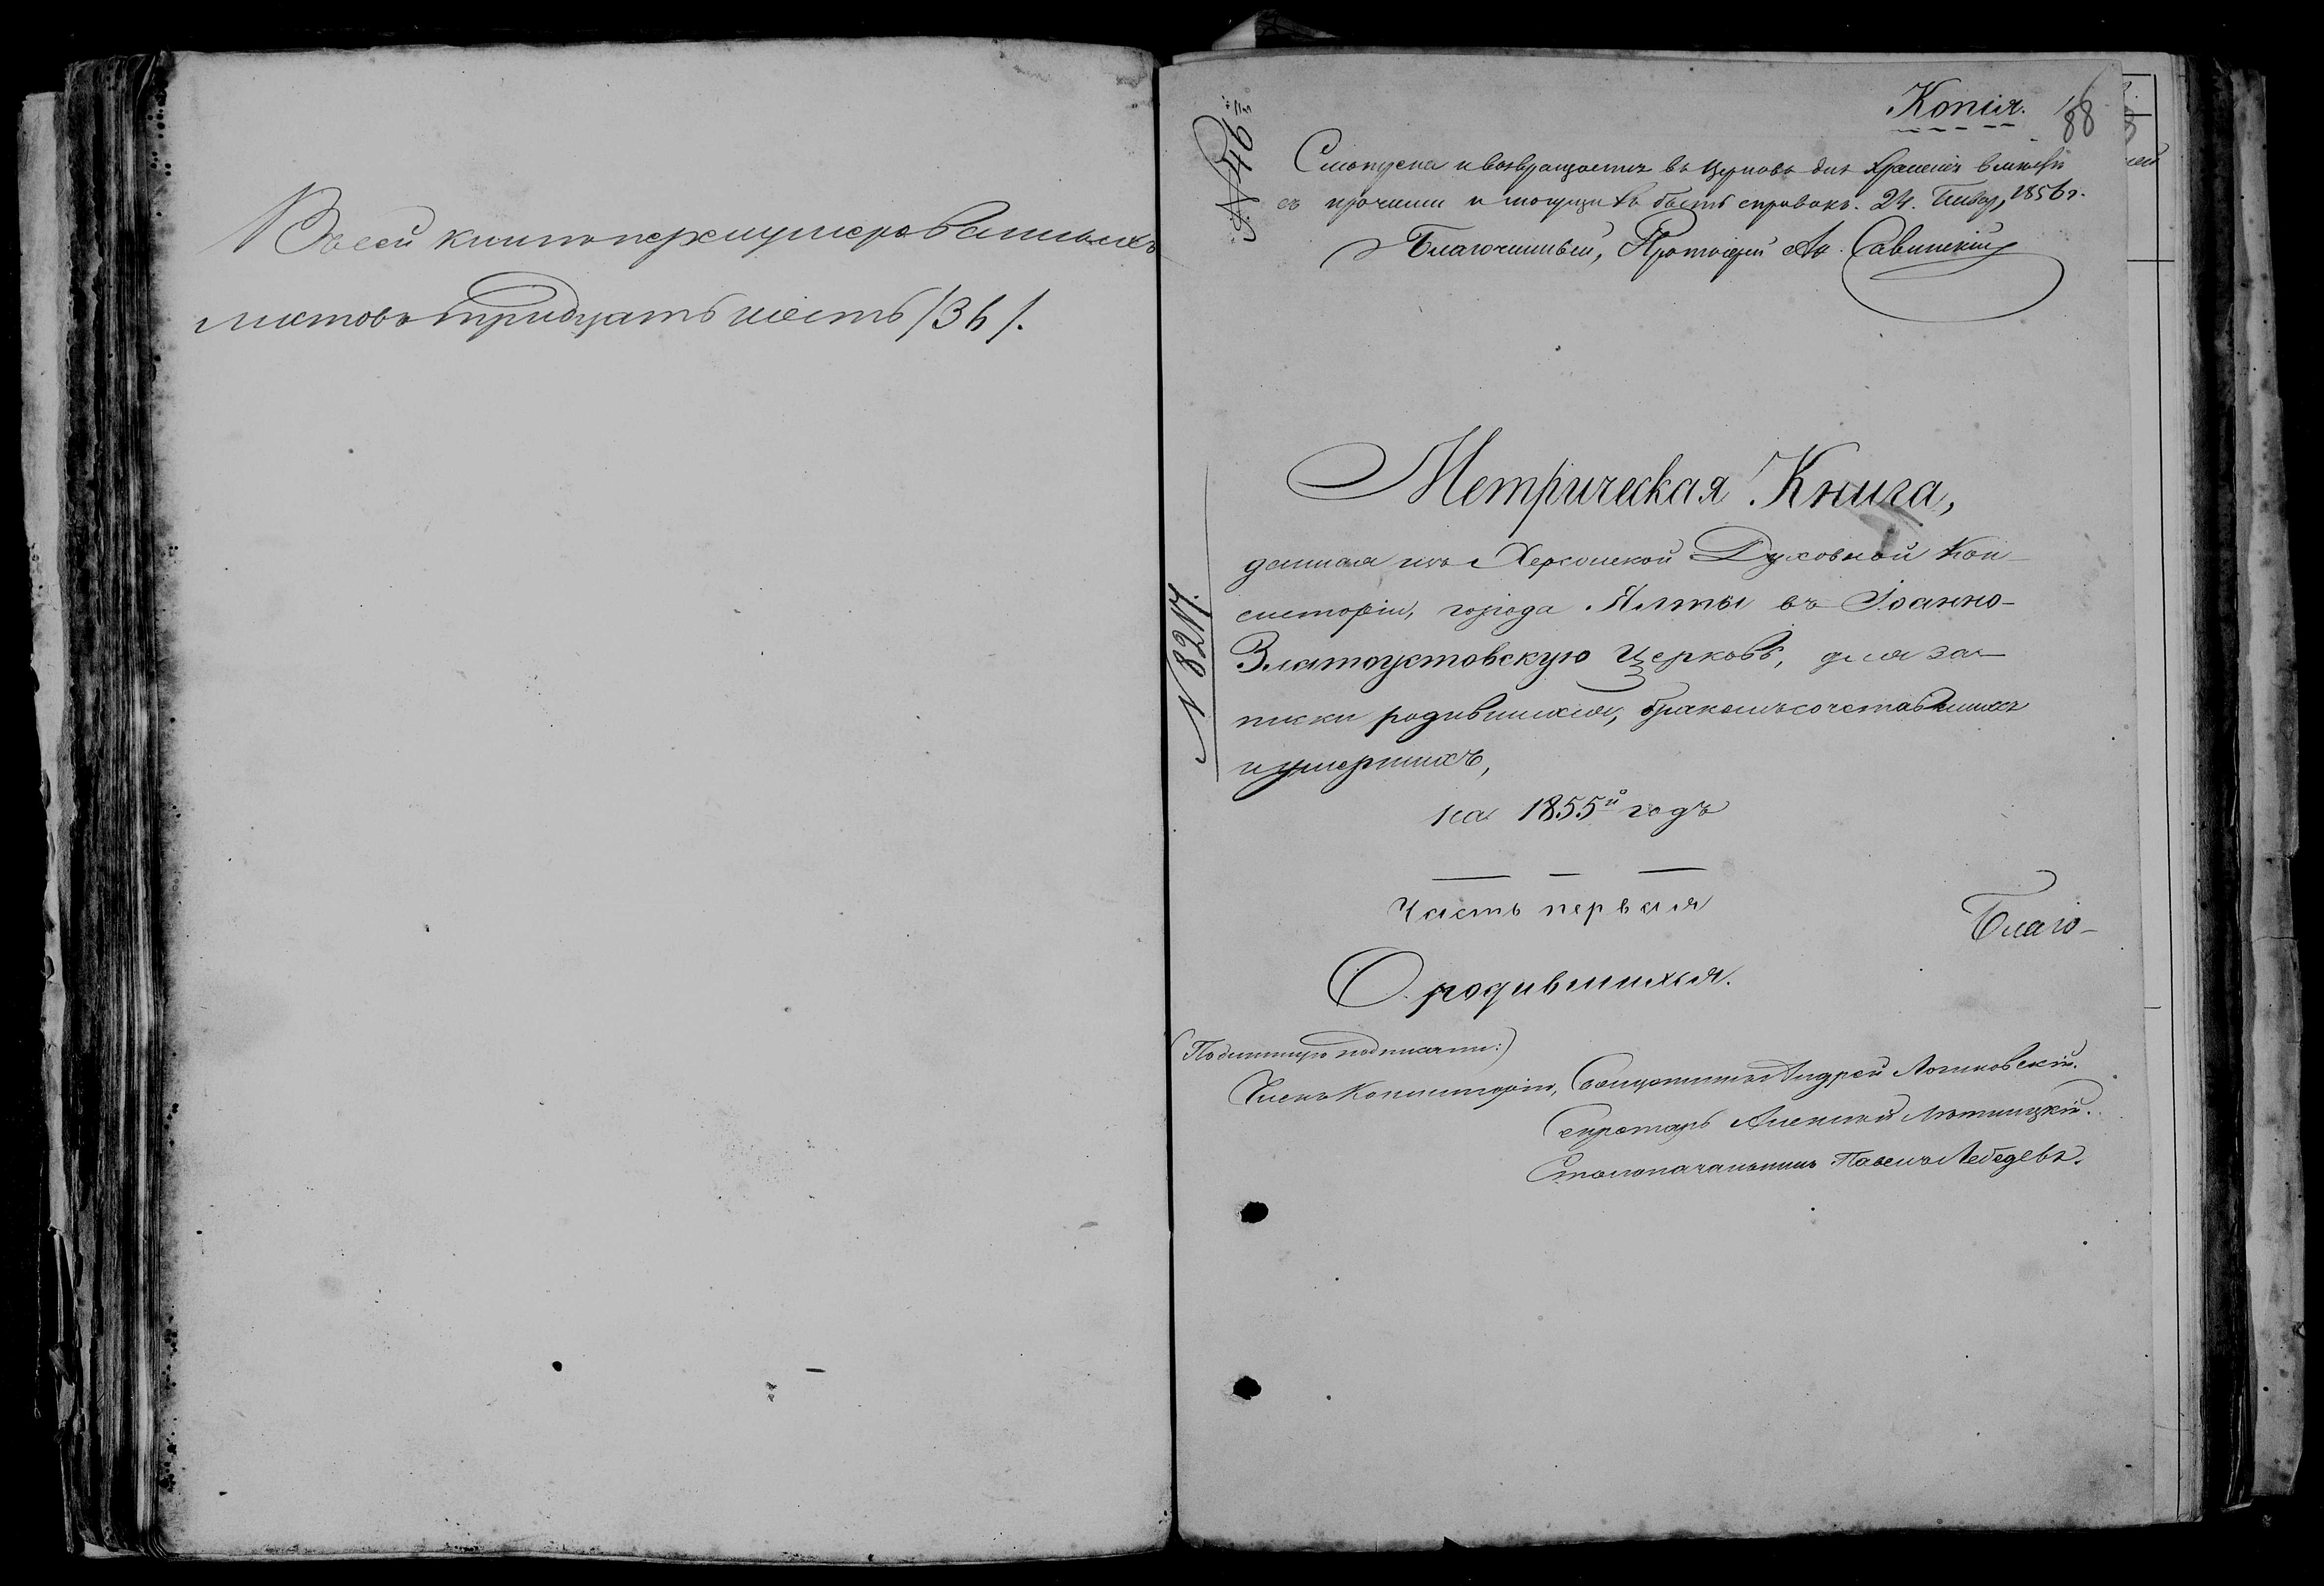 Въ сей книге перенумерованныхъ
листовъ тридцать шесть /36/.
Копия.
188
№ 46й
Смотрена и возвращается въ Церковь для храненія вместе
съ прочими и могущихъ быть справокъ. 24. Генвар, 1856 г.
Благочинный, Протоіерей Ал. Савинскій
№ 8217.
Метрическая Книга,
данная изъ Херсонской Духовной Кон-
систоріи, города Ялты въ Іоанно-
Златоустовскую Церковь, для за-
писки родившихся, бракомъ сочетавшихся
и умершихъ,
на 1855й годъ
Часть первая
Благо-
О родившихся.
(Подлинную подписали:)
Членъ Консисторіи, Священникъ Андрей Логиновскій.
Секретарь Алексей Лѣтницкій.
Столоначальникъ Павелъ Лебедевъ.